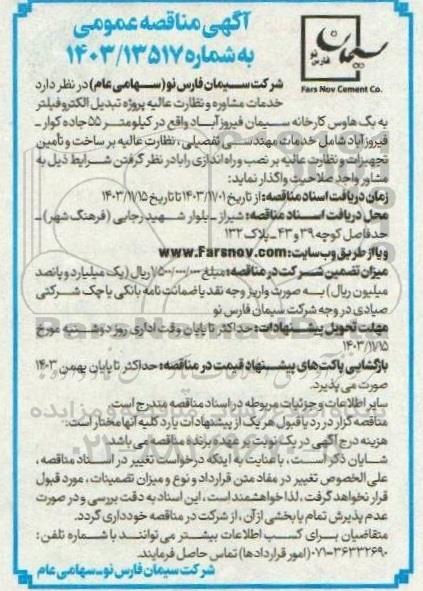 آگهی مناقصه عمومی
به شماره ۱۴۰۳/۱۳۵۱۷
سیمان
فارس نو
Fars Nov Cement Co.
شرکت سیمان فارس نو (سهامی عام) در نظر دارد
خدمات مشاوره و نظارت عالیه پروژه تبدیل الکتروفیلتر
به بگ هاوس کارخانه سیمان فیروزآباد واقع در کیلومتر ۵۵ جاده کوار ـ
فیروزآباد شامل خدمات مهندسی تفصیلی، نظارت عالیه بر ساخت و تأمین
تجهیزات و نظارت عالیه بر نصب و راه اندازی را با در نظر گرفتن شرایط ذیل به
مشاور واجد صلاحیت واگذار نماید:
زمان دریافت اسناد مناقصه: از تاریخ ۱۴۰۳/۱۱/۰۱ تا تاریخ ۱۴۰۳/۱۱/۱۵
محل دریافت اسناد مناقصه: شیراز ـ بلوار شهید رجایی (فرهنگ شهر) ـ
حدفاصل کوچه ۳۹ و ۴۳ ـ پلاک ۱۳۲
ویا از طریق وب سایت: www.Farsnov.com
میزان تضمین شرکت در مناقصه: مبلغ ۱/۵۰۰/۰۰۰/۰۰۰ ریال (یک میلیارد و پانصد
میلیون ریال) به صورت واریز وجه نقد یا ضمانت نامه بانکی یا چک شرکتی
صیادی در وجه شرکت سیمان فارس نو
مهلت تحویل پیشنهادات: حداکثر تا پایان وقت اداری روز دوشنبه مورخ
۱۴۰۳/۱۱/۱۵
بازگشایی پاکت‌های پیشنهاد قیمت در مناقصه: حداکثر تا پایان بهمن ۱۴۰۳
صورت می‌پذیرد.
سایر اطلاعات و جزئیات مربوطه در اسناد مناقصه مندرج است.
مناقصه گزار در رد یا قبول هر یک از پیشنهادات یا رد کلیه آنها مختار است:
هزینه درج آگهی در یک نوبت بر عهده برنده مناقصه می باشد.
شایان ذکر است، با عنایت به اینکه درخواست تغییر در اسناد مناقصه،
علی الخصوص تغییر در مفاد متن قرارداد و نوع و میزان تضمینات، مورد قبول
قرار نخواهد گرفت، لذا خواهشمند است، این اسناد به دقت بررسی و در صورت
عدم پذیرش تمام یا بخشی از آن، از شرکت در مناقصه خودداری گردد.
متقاضیان برای کسب اطلاعات بیشتر می توانند با شماره تلفن:
۰۷۱-۳۶۳۳۲۶۹۰ (امور قراردادها) تماس حاصل فرمایند.
شرکت سیمان فارس نو ـ سهامی عام